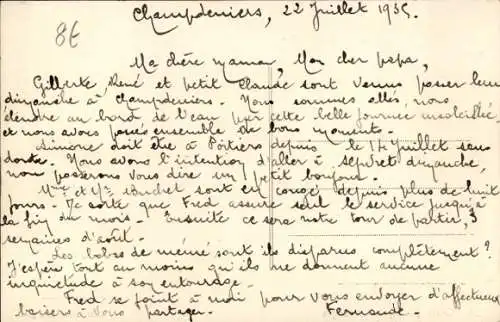 8€
Champdeniers, 22 Juillet 1935.
Ma chère maman, Mon cher papa,
Gilberte René et petit Claude sont venus passer leur
dimanche à Champdeniers. Nous sommes allés, nous
étendre au bord de l'eau par cette belle journée ensoleillée
et nous avons passé ensemble de bons moments.
Simone doit être à Poitiers depuis le 14 Juillet sans
doute. Nous avons l'intention d'aller à Sepvret dimanche,
nous passerons vous dire un petit bonjour.
Mr et Mme Buchet sont en congé depuis plus de huit
jours. De sorte que Fred assure seul le service jusqu'à
la fin du mois. Ensuite ce sera notre tour de partir, 3
semaines d'août.
Les bobos de mémé sont ils disparus complètement ?
J'espère tout au moins qu'ils ne donnent aucune
inquiétude à son entourage.
Fred se joint à moi pour vous envoyer d'affectueux
baisers à vous partager. Fernande.